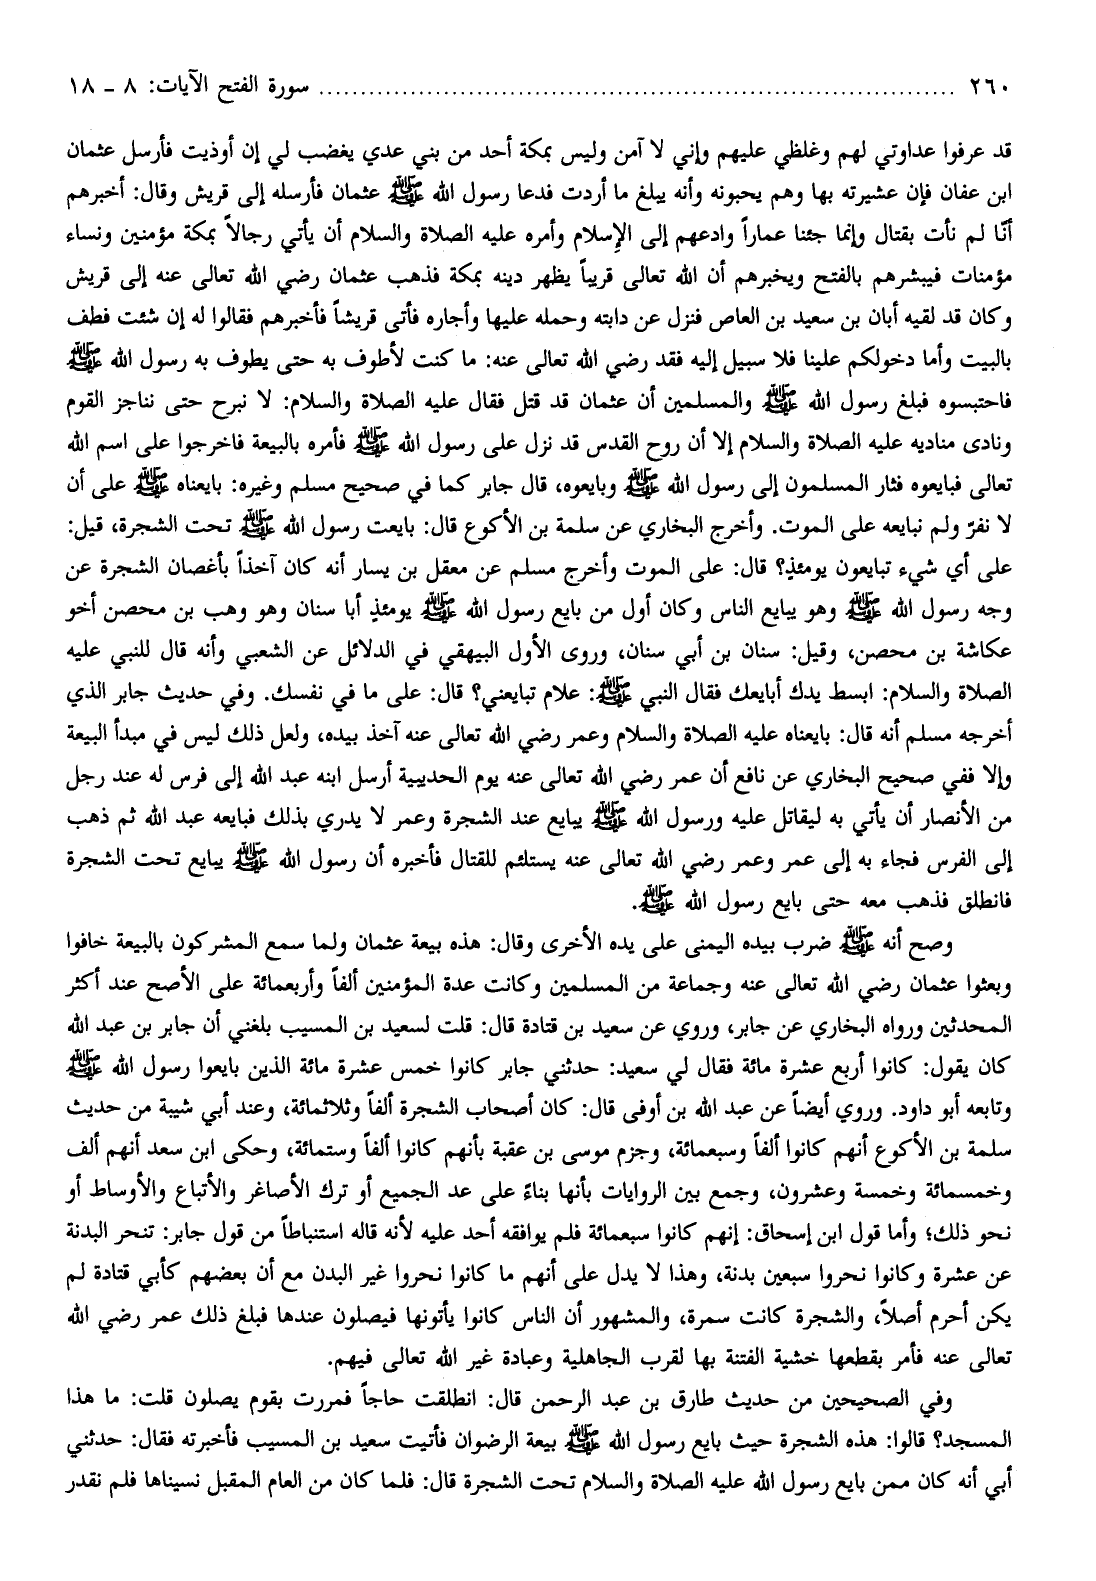 ٢٦٠ ........................................................................... سورة الفتح الآيات: ٨ - ١٨
قد عرفوا عداوتي لهم وغلظي عليهم وإني لا آمن وليس بمكة أحد من بني عدي يغضب لي إن أوذيت فأرسل عثمان
ابن عفان فإن عشيرته بها وهم يحبونه وأنه يبلغ ما أردت فدعا رسول الله ﷺ عثمان فأرسله إلى قريش وقال: أخبرهم
أنّا لم نأت بقتال وإنما جئنا عماراً وادعهم إلى الإسلام وأمره عليه الصلاة والسلام أن يأتي رجالاً بمكة مؤمنين ونساء
مؤمنات فيبشرهم بالفتح ويخبرهم أن الله تعالى قريباً يظهر دينه بمكة فذهب عثمان رضي الله تعالى عنه إلى قريش
وكان قد لقيه أبان بن سعيد بن العاص فنزل عن دابته وحمله عليها وأجاره فأتى قريشاً فأخبرهم فقالوا له إن شئت فطف
بالبيت وأما دخولكم علينا فلا سبيل إليه فقد رضي الله تعالى عنه: ما كنت لأطوف به حتى يطوف به رسول الله ﷺ
فاحتبسوه فبلغ رسول الله ﷺ والمسلمين أن عثمان قد قتل فقال عليه الصلاة والسلام: لا نبرح حتى نناجز القوم
ونادى مناديه عليه الصلاة والسلام إلا أن روح القدس قد نزل على رسول الله ﷺ فأمره بالبيعة فاخرجوا على اسم الله
تعالى فبايعوه فثار المسلمون إلى رسول الله ﷺ وبايعوه، قال جابر كما في صحيح مسلم وغيره: بايعناه ﷺ على أن
لا نفرّ ولم نبايعه على الموت. وأخرج البخاري عن سلمة بن الأكوع قال: بايعت رسول الله ﷺ تحت الشجرة، قيل:
على أي شيء تبايعون يومئذٍ؟ قال: على الموت وأخرج مسلم عن معقل بن يسار أنه كان آخذاً بأغصان الشجرة عن
وجه رسول الله ﷺ وهو يبايع الناس وكان أول من بايع رسول الله ﷺ يومئذٍ أبا سنان وهو وهب بن محصن أخو
عكاشة بن محصن، وقيل: سنان بن أبي سنان، وروى الأول البيهقي في الدلائل عن الشعبي وأنه قال للنبي عليه
الصلاة والسلام: ابسط يدك أبايعك فقال النبي ﷺ: علام تبايعني؟ قال: على ما في نفسك. وفي حديث جابر الذي
أخرجه مسلم أنه قال: بايعناه عليه الصلاة والسلام وعمر رضي الله تعالى عنه آخذ بيده، ولعل ذلك ليس في مبدأ البيعة
وإلا ففي صحيح البخاري عن نافع أن عمر رضي الله تعالى عنه يوم الحديبية أرسل ابنه عبد الله إلى فرس له عند رجل
من الأنصار أن يأتي به ليقاتل عليه ورسول الله ﷺ يبايع عند الشجرة وعمر لا يدري بذلك فبايعه عبد الله ثم ذهب
إلى الفرس فجاء به إلى عمر وعمر رضي الله تعالى عنه يستلئم للقتال فأخبره أن رسول الله ﷺ يبايع تحت الشجرة
فانطلق فذهب معه حتى بايع رسول الله ﷺ.
وصح أنه ﷺ ضرب بيده اليمنى على يده الأخرى وقال: هذه بيعة عثمان ولما سمع المشركون بالبيعة خافوا
وبعثوا عثمان رضي الله تعالى عنه وجماعة من المسلمين وكانت عدة المؤمنين ألفاً وأربعمائة على الأصح عند أكثر
المحدثين ورواه البخاري عن جابر، وروي عن سعيد بن قتادة قال: قلت لسعيد بن المسيب بلغني أن جابر بن عبد الله
كان يقول: كانوا أربع عشرة مائة فقال لي سعيد: حدثني جابر كانوا خمس عشرة مائة الذين بايعوا رسول الله ﷺ
وتابعه أبو داود. وروي أيضاً عن عبد الله بن أوفى قال: كان أصحاب الشجرة ألفاً وثلاثمائة، وعند أبي شيبة من حديث
سلمة بن الأكوع أنهم كانوا ألفاً وسبعمائة، وجزم موسى بن عقبة بأنهم كانوا ألفاً وستمائة، وحكى ابن سعد أنهم ألف
وخمسمائة وخمسة وعشرون، وجمع بين الروايات بأنها بناءً على عد الجميع أو ترك الأصاغر والأتباع والأوساط أو
نحو ذلك؛ وأما قول ابن إسحاق: إنهم كانوا سبعمائة فلم يوافقه أحد عليه لأنه قاله استنباطاً من قول جابر: تنحر البدنة
عن عشرة وكانوا نحروا سبعين بدنة، وهذا لا يدل على أنهم ما كانوا نحروا غير البدن مع أن بعضهم كأبي قتادة لم
يكن أحرم أصلاً، والشجرة كانت سمرة، والمشهور أن الناس كانوا يأتونها فيصلون عندها فبلغ ذلك عمر رضي الله
تعالى عنه فأمر بقطعها خشية الفتنة بها لقرب الجاهلية وعبادة غير الله تعالى فيهم.
وفي الصحيحين من حديث طارق بن عبد الرحمن قال: انطلقت حاجاً فمررت بقوم يصلون قلت: ما هذا
المسجد؟ قالوا: هذه الشجرة حيث بايع رسول الله ﷺ بيعة الرضوان فأتيت سعيد بن المسيب فأخبرته فقال: حدثني
أبي أنه كان ممن بايع رسول الله عليه الصلاة والسلام تحت الشجرة قال: فلما كان من العام المقبل نسيناها فلم نقدر